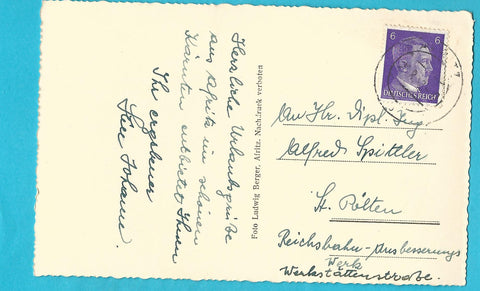 Herzliche Urlaubsgrüße
aus Afritz im schönen
Kärnten entbietet Ihnen
Ihr ergebener
Johann.
Foto Ludwig Berger, Afritz. Nachdruck verboten
6 6
DEUTSCHES REICH
An Hr. Dipl. Ing.
Alfred Spittler
St. Pölten
Reichsbahn-Ausbesserungs
Werk
Werkstättenstraße.